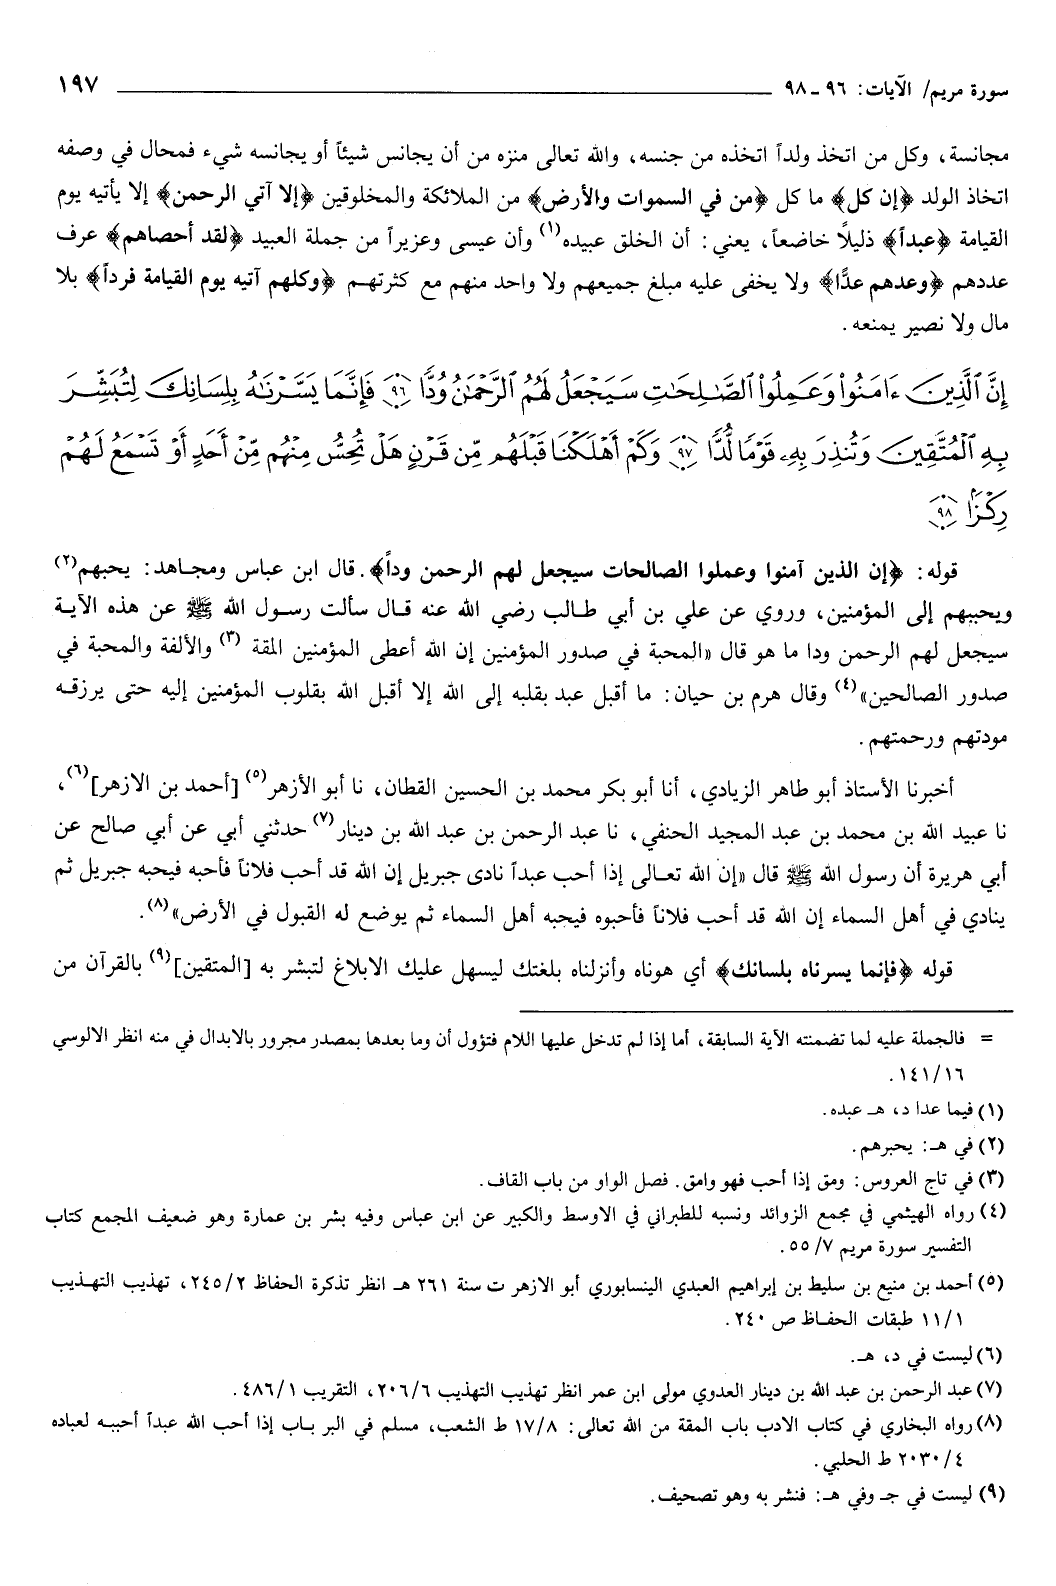 سورة مريم/ الآيات: ٩٦ ـ ٩٨ ١٩٧
مجانسة، وكل من اتخذ ولداً اتخذه من جنسه، والله تعالى منزه من أن يجانس شيئاً أو يجانسه شيء فمحال في وصفه
اتخاذ الولد ﴿إن كل﴾ ما كل ﴿من في السموات والأرض﴾ من الملائكة والمخلوقين ﴿إلا آتي الرحمن﴾ إلا يأتيه يوم
القيامة ﴿عبداً﴾ ذليلًا خاضعاً، يعني: أن الخلق عبيده(١) وأن عيسى وعزيراً من جملة العبيد ﴿لقد أحصاهم﴾ عرف
عددهم ﴿وعدهم عدًّا﴾ ولا يخفى عليه مبلغ جميعهم ولا واحد منهم مع كثرتهم ﴿وكلهم آتيه يوم القيامة فرداً﴾ بلا
مال ولا نصير يمنعه.
إِنَّ ٱلَّذِينَ ءَامَنُوا۟ وَعَمِلُوا۟ ٱلصَّـٰلِحَـٰتِ سَيَجْعَلُ لَهُمُ ٱلرَّحْمَـٰنُ وُدًّا ۝٩٦ فَإِنَّمَا يَسَّرْنَـٰهُ بِلِسَانِكَ لِتُبَشِّرَ
بِهِ ٱلْمُتَّقِينَ وَتُنذِرَ بِهِۦ قَوْمًا لُّدًّا ۝٩٧ وَكَمْ أَهْلَكْنَا قَبْلَهُم مِّن قَرْنٍ هَلْ تُحِسُّ مِنْهُم مِّنْ أَحَدٍ أَوْ تَسْمَعُ لَهُمْ
رِكْزًۢا ۝٩٨
قوله: ﴿إن الذين آمنوا وعملوا الصالحات سيجعل لهم الرحمن وداً﴾. قال ابن عباس ومجاهد: يحبهم(٢)
ويحببهم إلى المؤمنين، وروي عن علي بن أبي طالب رضي الله عنه قال سألت رسول الله ﷺ عن هذه الآية
سيجعل لهم الرحمن ودا ما هو قال «المحبة في صدور المؤمنين إن الله أعطى المؤمنين المقة (٣) والألفة والمحبة في
صدور الصالحين»(٤) وقال هرم بن حيان: ما أقبل عبد بقلبه إلى الله إلا أقبل الله بقلوب المؤمنين إليه حتى يرزقه
مودتهم ورحمتهم.
أخبرنا الأستاذ أبو طاهر الزيادي، أنا أبو بكر محمد بن الحسين القطان، نا أبو الأزهر(٥) [أحمد بن الازهر](٦)،
نا عبيد الله بن محمد بن عبد المجيد الحنفي، نا عبد الرحمن بن عبد الله بن دينار(٧) حدثني أبي عن أبي صالح عن
أبي هريرة أن رسول الله ﷺ قال «إن الله تعالى إذا أحب عبداً نادى جبريل إن الله قد أحب فلاناً فأحبه فيحبه جبريل ثم
ينادي في أهل السماء إن الله قد أحب فلاناً فأحبوه فيحبه أهل السماء ثم يوضع له القبول في الأرض»(٨).
قوله ﴿فإنما يسرناه بلسانك﴾ أي هوناه وأنزلناه بلغتك ليسهل عليك الابلاغ لتبشر به [المتقين](٩) بالقرآن من
= فالجملة عليه لما تضمنته الآية السابقة، أما إذا لم تدخل عليها اللام فتؤول أن وما بعدها بمصدر مجرور بالابدال في منه انظر الالوسي
١٤١/١٦.
(١) فيما عدا د، هـ عبده.
(٢) في هـ: يحبرهم.
(٣) في تاج العروس: ومق إذا أحب فهو وامق. فصل الواو من باب القاف.
(٤) رواه الهيثمي في مجمع الزوائد ونسبه للطبراني في الاوسط والكبير عن ابن عباس وفيه بشر بن عمارة وهو ضعيف المجمع كتاب
التفسير سورة مريم ٥٥/٧.
(٥) أحمد بن منيع بن سليط بن إبراهيم العبدي الينسابوري أبو الازهر ت سنة ٢٦١ هـ انظر تذكرة الحفاظ ٢٤٥/٢، تهذيب التهذيب
١١/١ طبقات الحفاظ ص ٢٤٠.
(٦) ليست في د، هـ.
(٧) عبد الرحمن بن عبد الله بن دينار العدوي مولى ابن عمر انظر تهذيب التهذيب ٢٠٦/٦، التقريب ٤٨٦/١.
(٨) رواه البخاري في كتاب الادب باب المقة من الله تعالى: ١٧/٨ ط الشعب، مسلم في البر باب إذا أحب الله عبداً أحببه لعباده
٢٠٣٠/٤ ط الحلبي.
(٩) ليست في جـ وفي هـ: فنشر به وهو تصحيف.